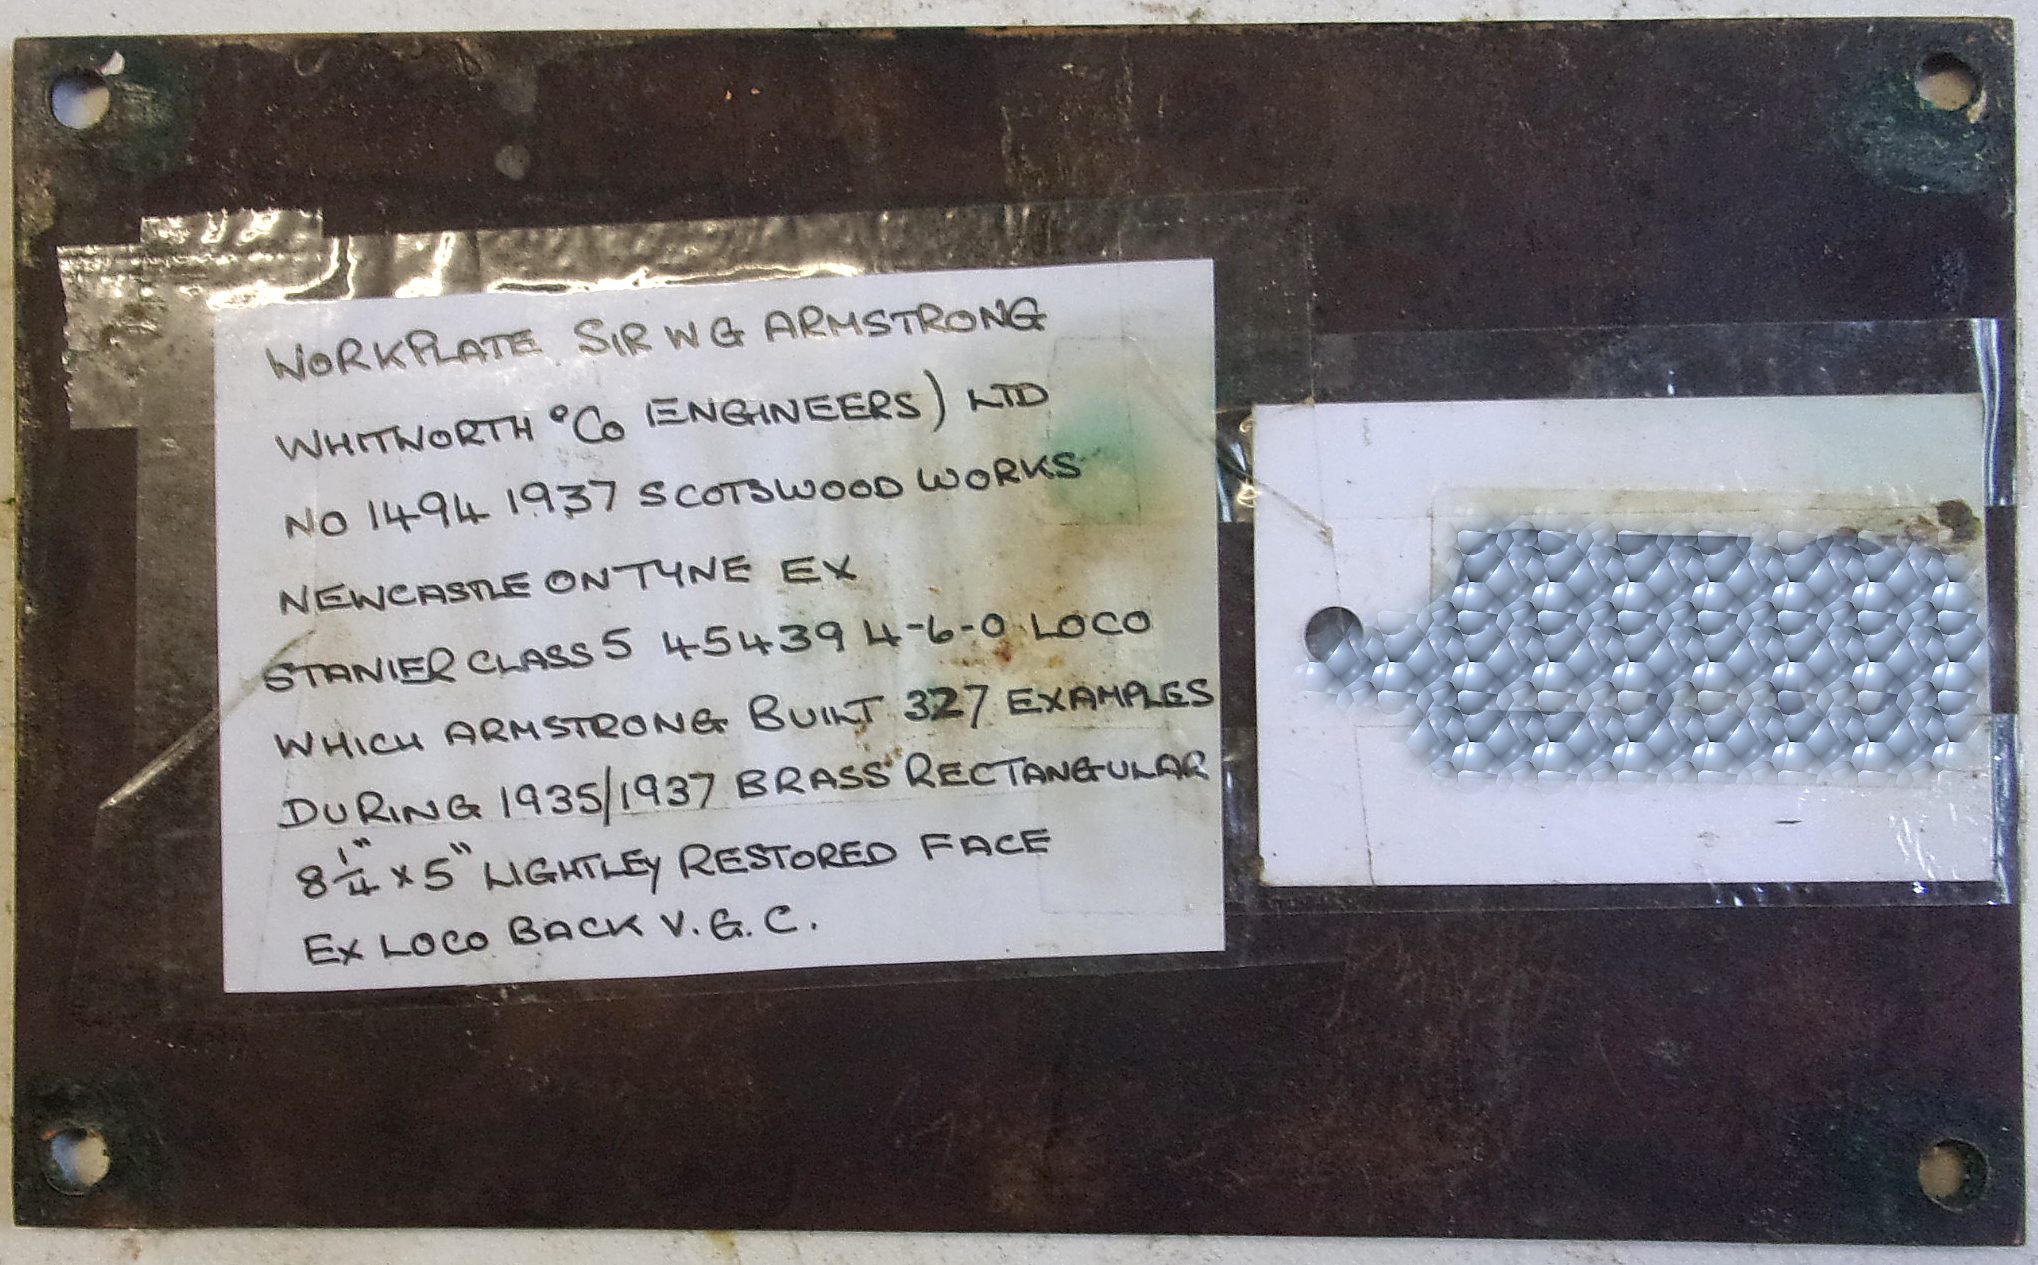 WORKPLATE SIR W G ARMSTRONG
WHITWORTH & Co (ENGINEERS) LTD
NO 1494 1937 SCOTSWOOD WORKS
NEWCASTLE ON TYNE EX
STANIER CLASS 5 45439 4-6-0 LOCO
WHICH ARMSTRONG BUILT 327 EXAMPLES
DURING 1935/1937 BRASS RECTANGULAR
8 1/4" x 5" LIGHTLEY RESTORED FACE
EX LOCO BACK V.G.C.